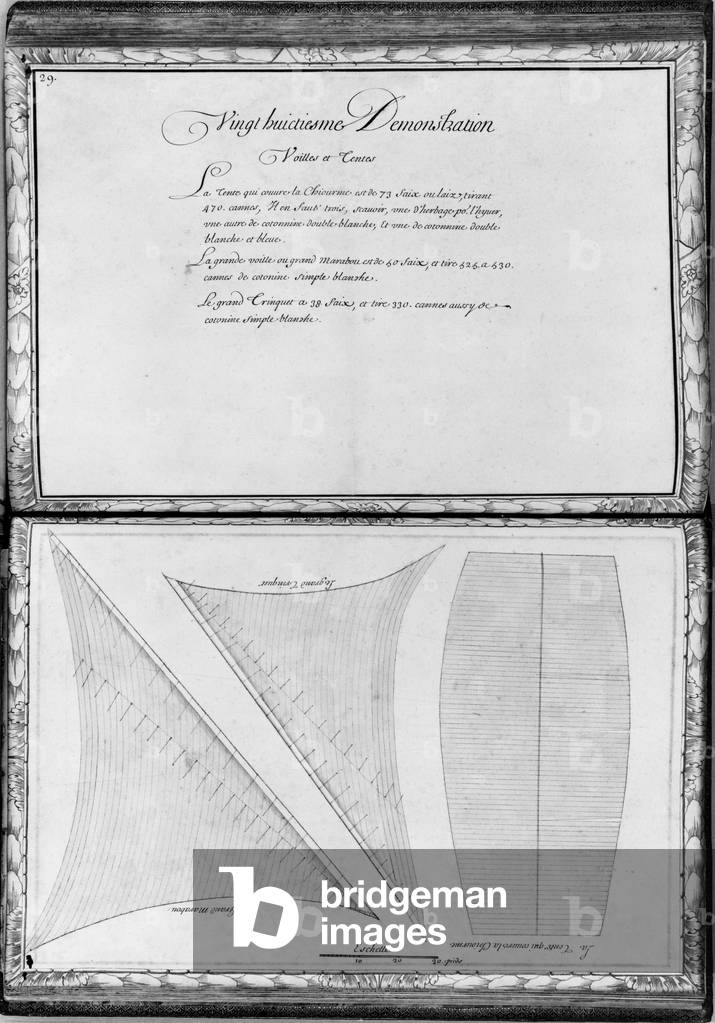 29.
Vingt huictiesme Demonstration
Voilles et Tentes
La Tente qui couure la Chiourme est de 73 faix ou laiz, tirant
470. cannes, Il en faut trois, scauoir, vne d'herbage po.r l'hyuer,
vne autre de cotonnine double blanche, Et vne de cotonnine double
blanche et bleue.
La grande voille ou grand Marabou est de 50 faix, et tire 525 a 530.
cannes de cotonine simple blanche.
Le grand Trinquet a 38 faix, et tire 330. cannes aussy de
cotonine simple blanche.
Le grand Trinquet
grand Marabou
La Tente qui couure la Chiourme
Eschelle
10 20 30. pieds
b bridgeman
images